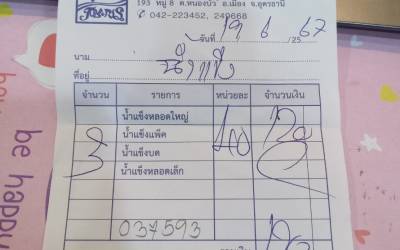 193 หมู่ 8 ต.หนองบัว อ.เมือง จ.อุดรธานี
✆ 042-223452, 249668
วันที่ 19 / 6 / 25 67
นาม
ที่อยู่
จำนวน รายการ หน่วยละ จำนวนเงิน
น้ำแข็งหลอดใหญ่
3 น้ำแข็งแพ็ค 40 120
น้ำแข็งบด
น้ำแข็งหลอดเล็ก
037593
be happy